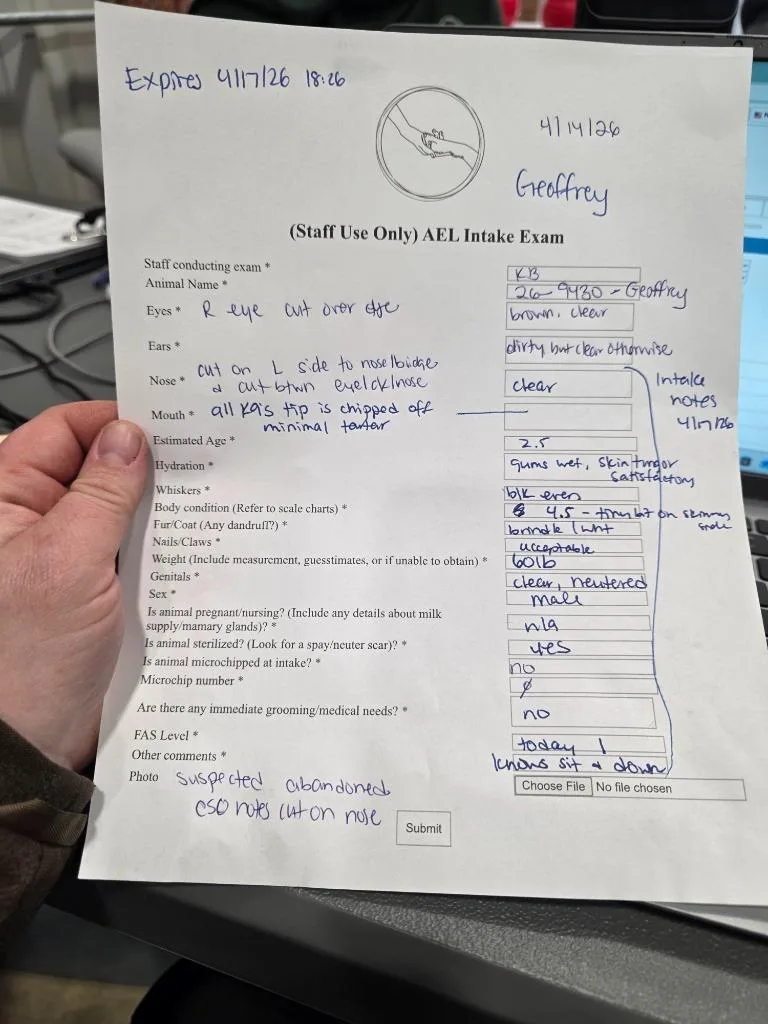 Expires 4/17/26 18:26
4/14/26
Geoffrey
(Staff Use Only) AEL Intake Exam
Staff conducting exam * KB
Animal Name * 26-9430 - Geoffrey
Eyes * R eye cut over eye brown, clear
Ears * dirty but clear otherwise
cut on L side to nose/bridge
Nose * & cut btwn eye/ck/nose clear
Intake
notes
4/17/26
Mouth * all K9s tip is chipped off
minimal tartar
Estimated Age * 2.5
Hydration * gums wet, skin turgor
satisfactory
Whiskers * blk even
Body condition (Refer to scale charts) * 4.5 - tiny bit on skinny
side
Fur/Coat (Any dandruff?) * brindle/wht
Nails/Claws * acceptable
Weight (Include measurement, guesstimates, or if unable to obtain) * 60lb
Genitals * clear, neutered
Sex * male
Is animal pregnant/nursing? (Include any details about milk
supply/mamary glands)? * n/a
Is animal sterilized? (Look for a spay/neuter scar)? * yes
Is animal microchipped at intake? * no
Microchip number * ∅
Are there any immediate grooming/medical needs? * no
FAS Level * today 1
Other comments * knows sit & down
Photo Choose File No file chosen
suspected abandoned
CSO notes cut on nose
Submit